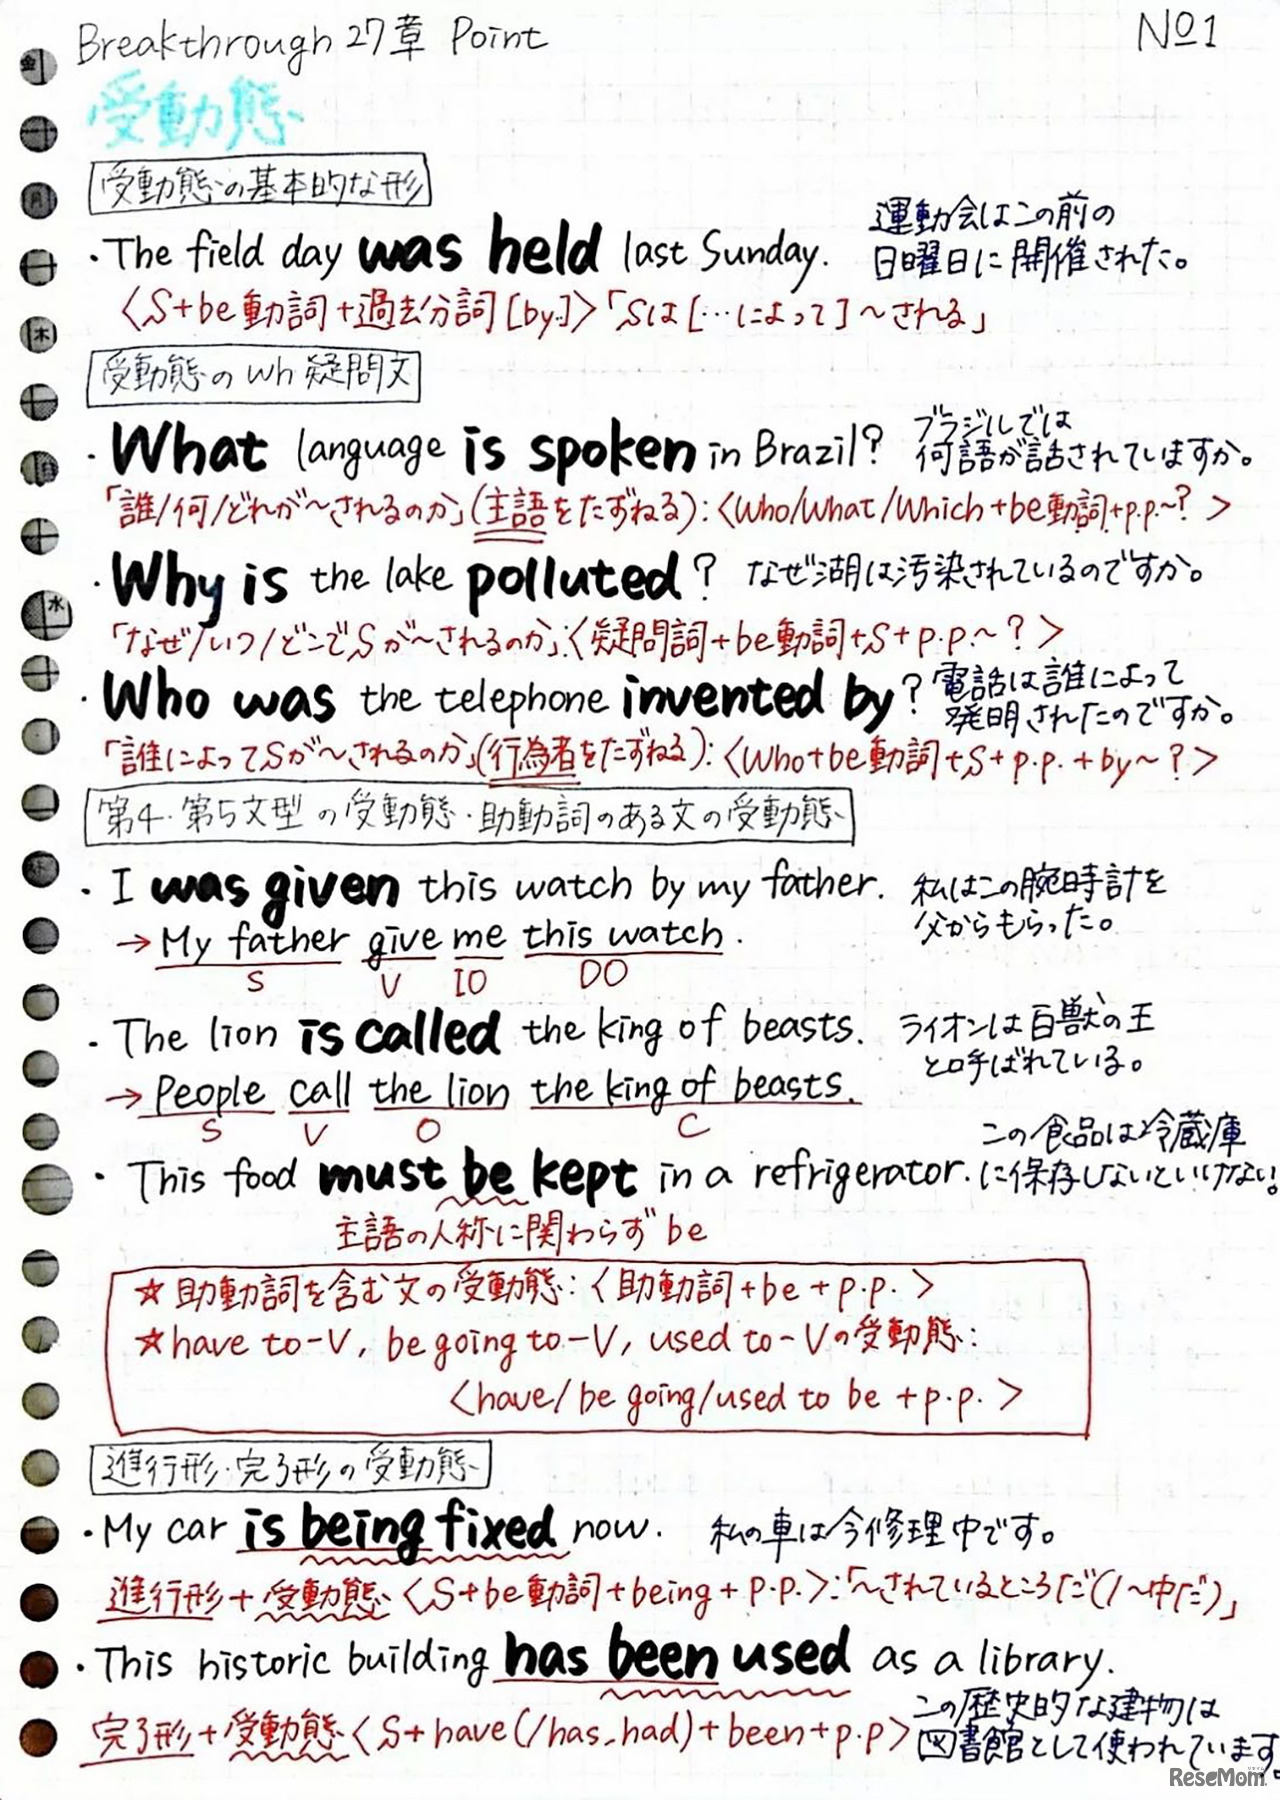 Breakthrough 27章 Point
No1
受動態
受動態の基本的な形
・The field day was held last Sunday. 運動会はこの前の
日曜日に開催された。
〈S+be動詞+過去分詞[by.]〉「Sは[…によって]～される」
受動態のwh疑問文
・What language is spoken in Brazil? ブラジルでは
何語が話されていますか。
「誰/何/どれが～されるのか」(主語をたずねる):〈Who/What/Which+be動詞+p.p.~?〉
・Why is the lake polluted? なぜ湖は汚染されているのですか。
「なぜ/いつ/どこでSが～されるのか」:〈疑問詞+be動詞+S+p.p~?〉
・Who was the telephone invented by? 電話は誰によって
発明されたのですか。
「誰によってSが～されるのか」(行為者をたずねる):〈Who+be動詞+S+p.p.+by~?〉
第4・第5文型の受動態・助動詞のある文の受動態
・I was given this watch by my father. 私はこの腕時計を
父からもらった。
→My father give me this watch.
S V IO DO
・The lion is called the king of beasts. ライオンは百獣の王
と呼ばれている。
→People call the lion the king of beasts.
S V O C
この食品は冷蔵庫
・This food must be kept in a refrigerator. に保存しないといけない。
主語の人称に関わらずbe
☆助動詞を含む文の受動態:〈助動詞+be+p.p.〉
☆have to-V, be going to-V, used to-Vの受動態:
〈have/be going/used to be+p.p.〉
進行形・完了形の受動態
・My car is being fixed now. 私の車は今修理中です。
進行形+受動態〈S+be動詞+being+p.p.〉:「～されているところだ(/～中だ)」
・This historic building has been used as a library.
この歴史的な建物は
完了形+受動態〈S+have(/has.had)+been+p.p〉図書館として使われています。
ReseMom